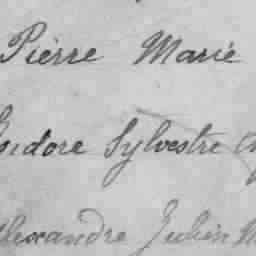 Pierre Marie
Isidore Sylvestre
Alexandre Julien